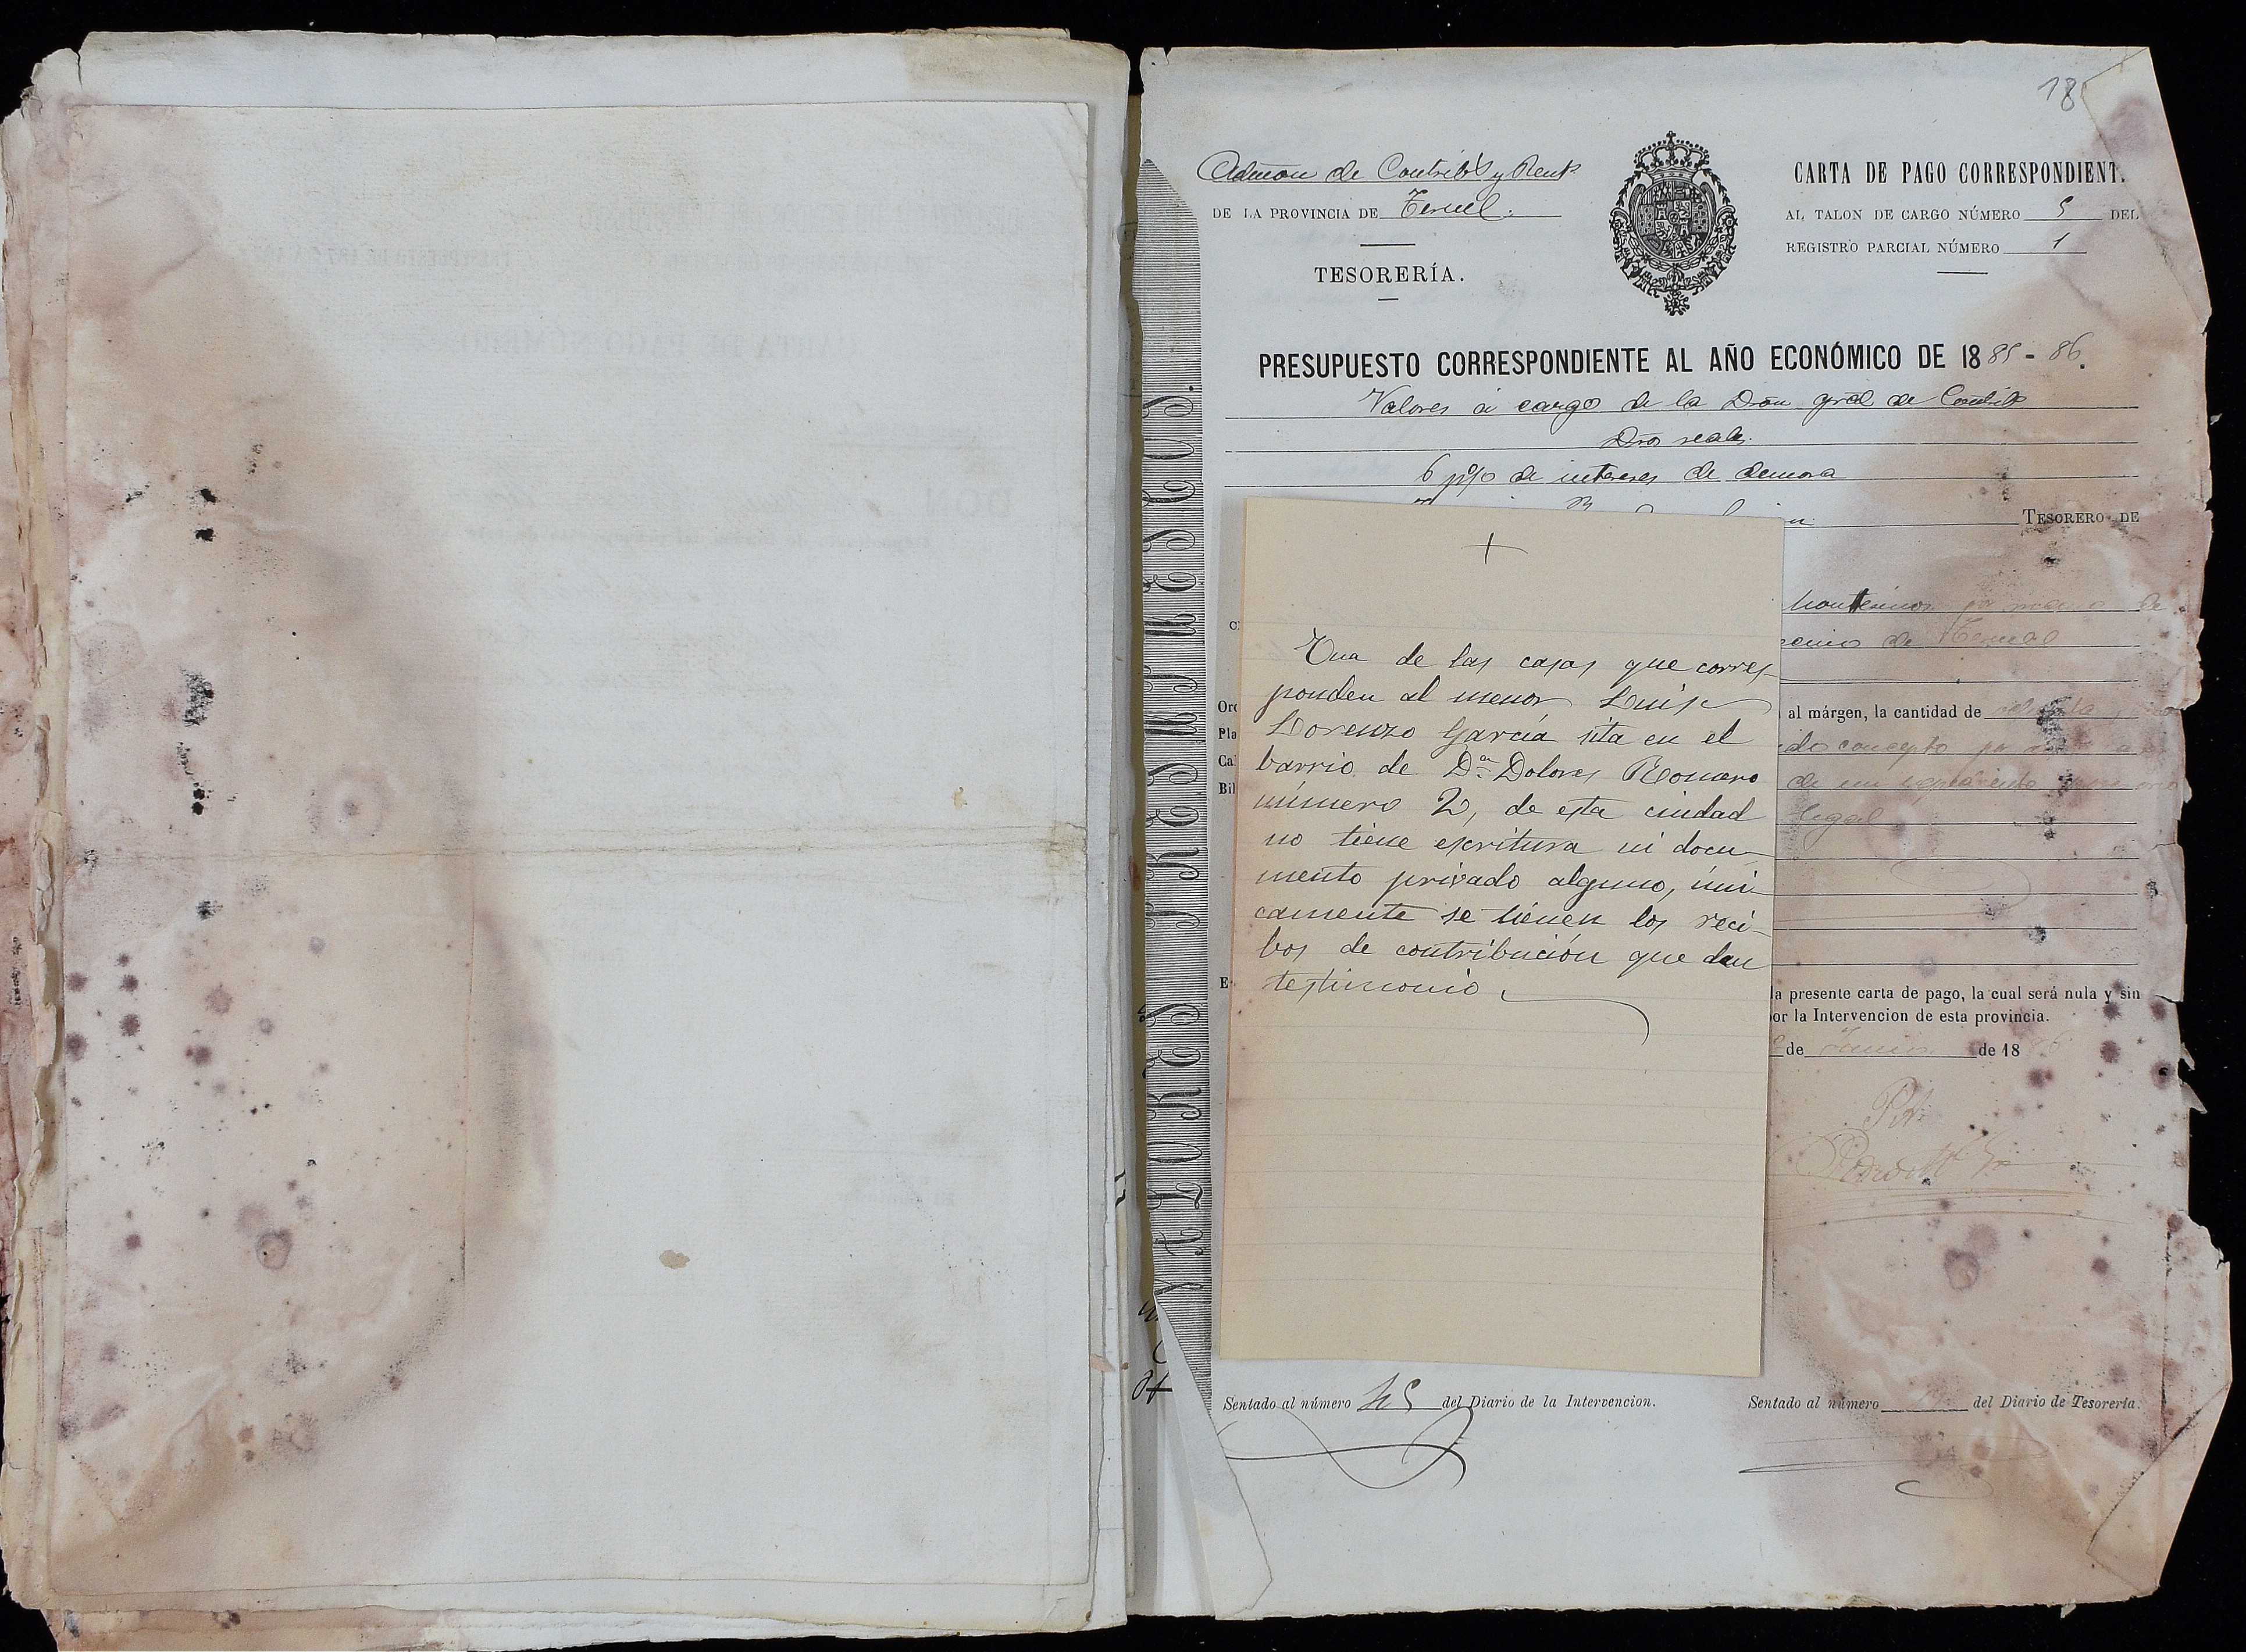 18
Admon de Contribs y Rents
DE LA PROVINCIA DE Teruel.
TESORERÍA.
CARTA DE PAGO CORRESPONDIENT
AL TALON DE CARGO NÚMERO 5 DEL
REGISTRO PARCIAL NÚMERO 1
PRESUPUESTO CORRESPONDIENTE AL AÑO ECONÓMICO DE 1885-86.
Valores á cargo de la Dron gral de Contribs
Dros reales.
6 p% de intereses de demora
TESORERO DE
por mano de
de Teruel
al márgen, la cantidad de
concepto por
de un expediente
legal
la presente carta de pago, la cual será nula y sin
por la Intervencion de esta provincia.
de Junio de 1886
P. A.
+
Una de las casas que corres-
ponden al menor Luis
Lorenzo García sita en el
barrio de Dª Dolores Romero
número 2, de esta ciudad
no tiene escritura ni docu-
mento privado alguno, úni-
camente se tienen los reci-
bos de contribución que dan
testimonio.
Sentado al número 45 del Diario de la Intervencion.
Sentado al número del Diario de Tesorería.